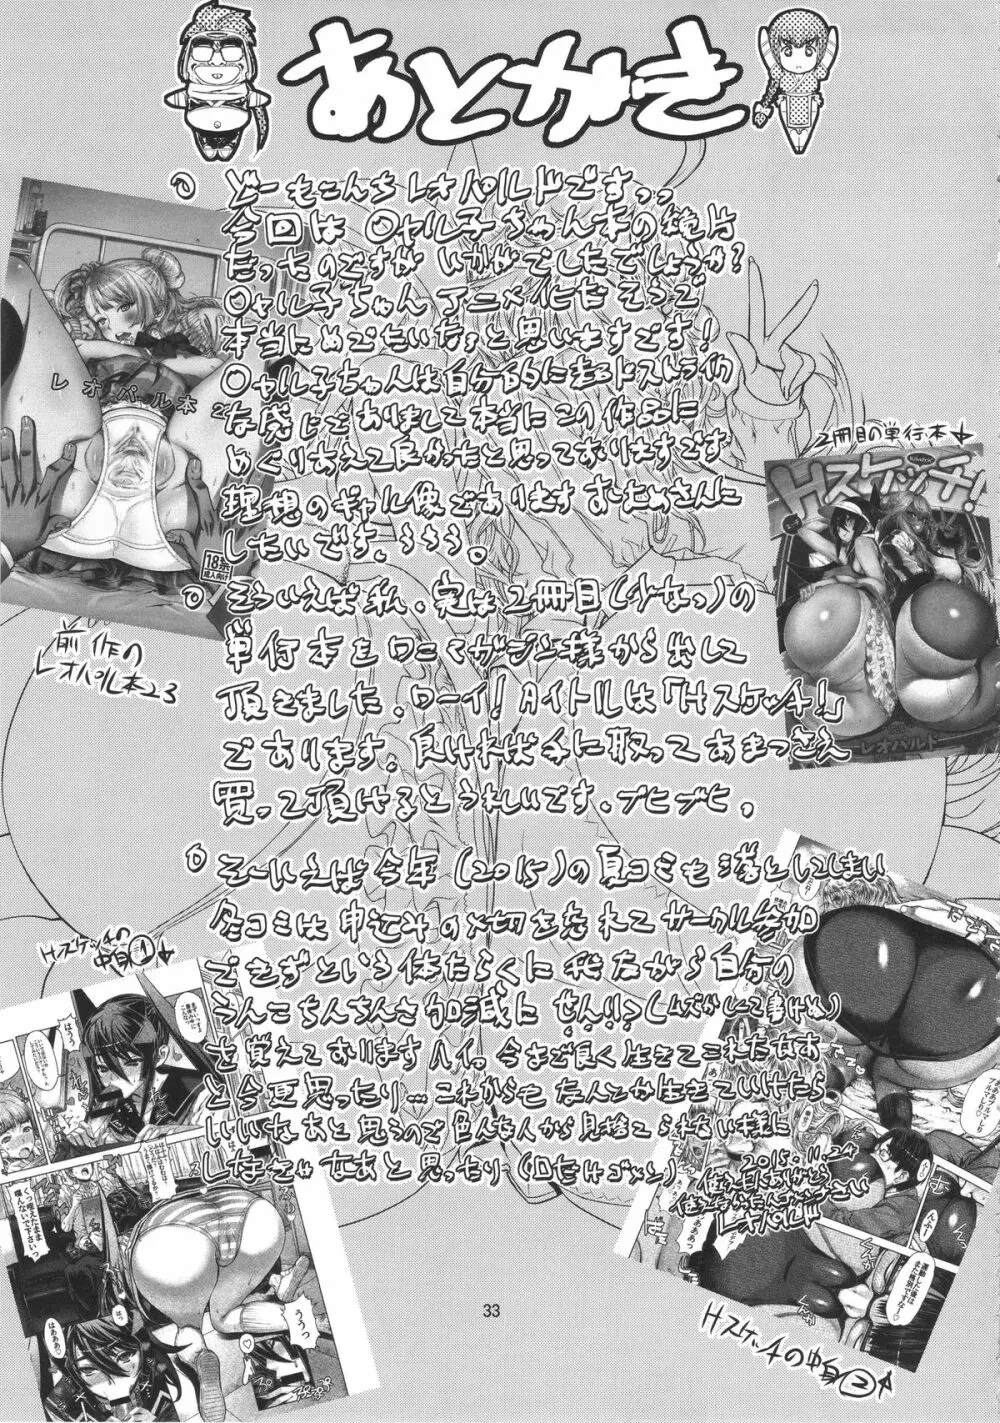 あとがき
どーもこんちレオパルドですっっ
今回は○ャル子ちゃん本の続片
だったのですがいかがでしたでしょうか?
○ャル子ちゃんアニメ化だそうで
本当にめでたいなぁと思いますです!
○ャル子ちゃんは自分的に超ドストライク
な感じでありまして本当にこの作品に
めぐりあえて良かったと思っておりますです
理想のギャル像であります
したいです。
そういえば私、実は2冊目(少なっ)の
単行本をワニマガジン様から出して
頂きました。ワーイ!タイトルは「Hスケッチ!」
であります。良ければ手に取ってあまつさえ
買って頂けるとうれしいです。ブヒブヒ。
そーいえば今年(2015)の夏コミも落としてしまい
冬コミは申込みの〆切を忘れてサークル参加
できずという体たらくに我ながら自分の
うんこちんちんさ加減にせんりつ(ムズかしくて書けぬ)
を覚えております ハイ。今まで良く生きてこれたなあ
と今更思ったり…これからもなんとか生きていけたら
いいなあと思うので色んな人から見捨てられない様に
しなきゃなあと思ったり
2015.11.24
レオパルド
レオパル本 2
18禁
成人向け
前作の
レオパル本23
2冊目の単行本
Hスケッチ!
レオパルド
Hスケッチの
中身①
くっ咥えたまま
噛んないで下さいっ
はぁぁぁ♡
ううっ
Hスケッチの中身②
運動した後は
また格別ですなー♡
33